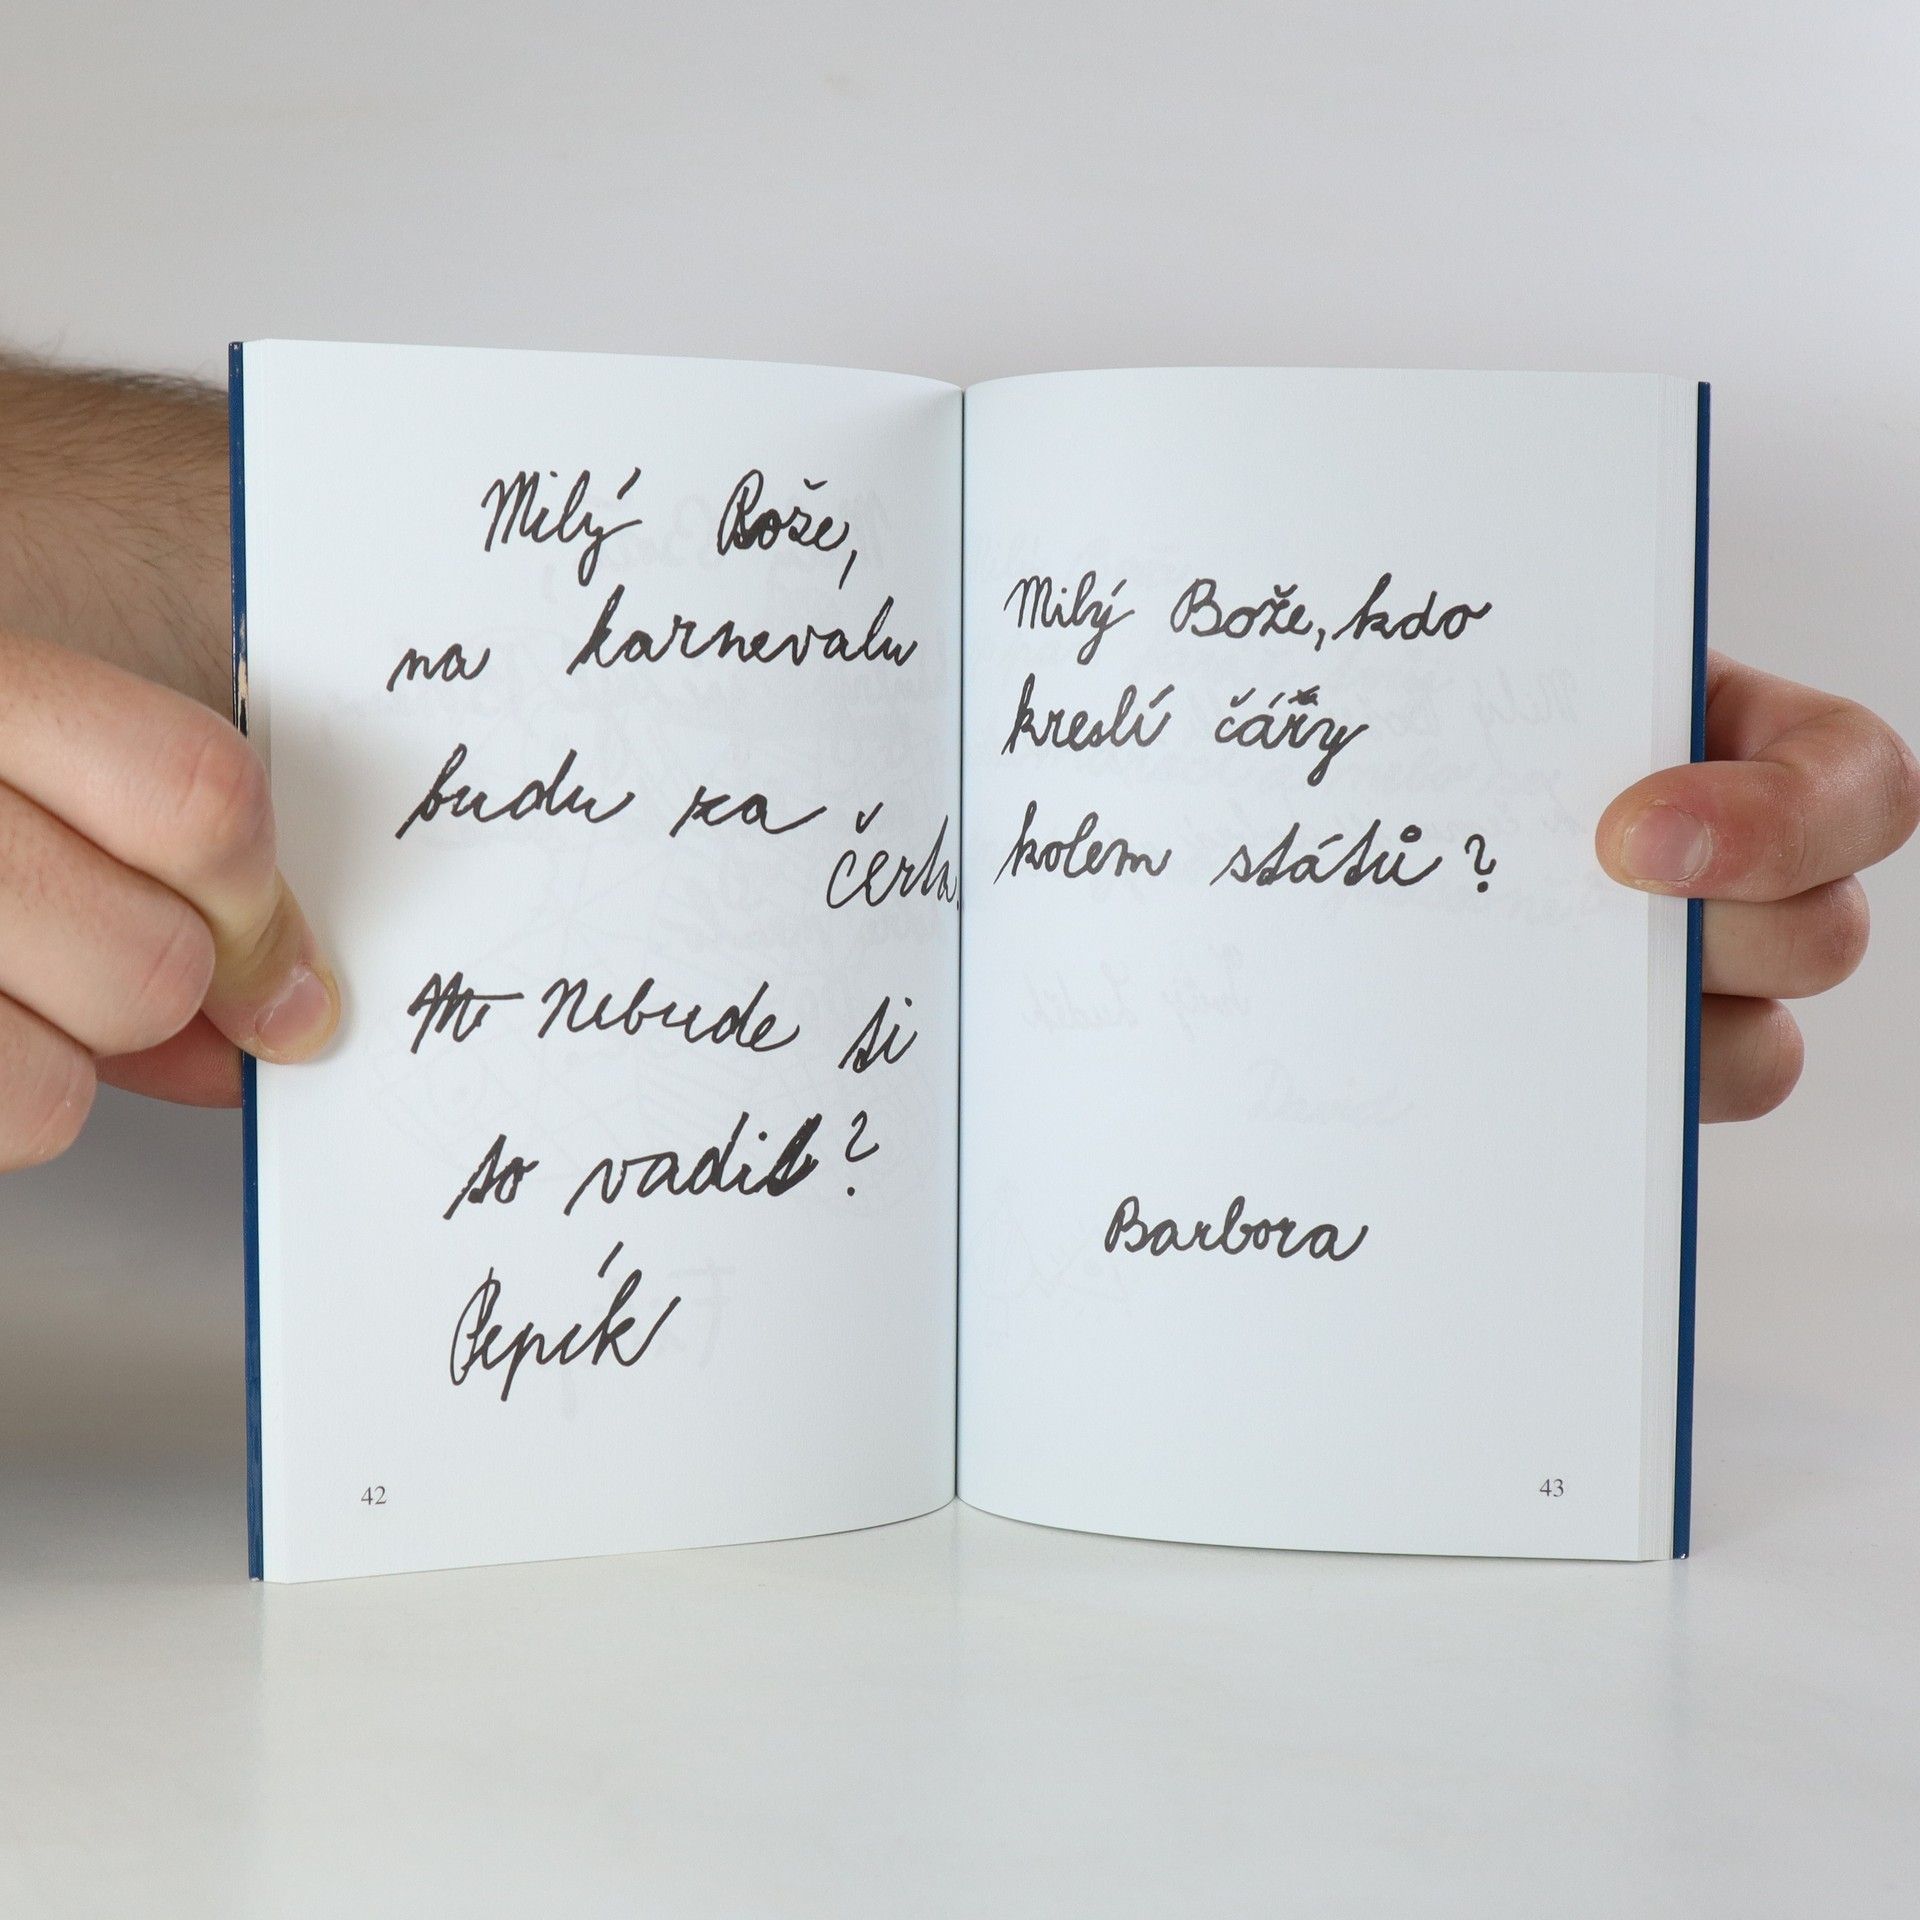 Milý Bože,
na karnevalu
budu za
čerta.
Nebude ti
to vadit?
Pepík
42
Milý Bože, kdo
kreslí čáry
kolem států?
Barbora
43